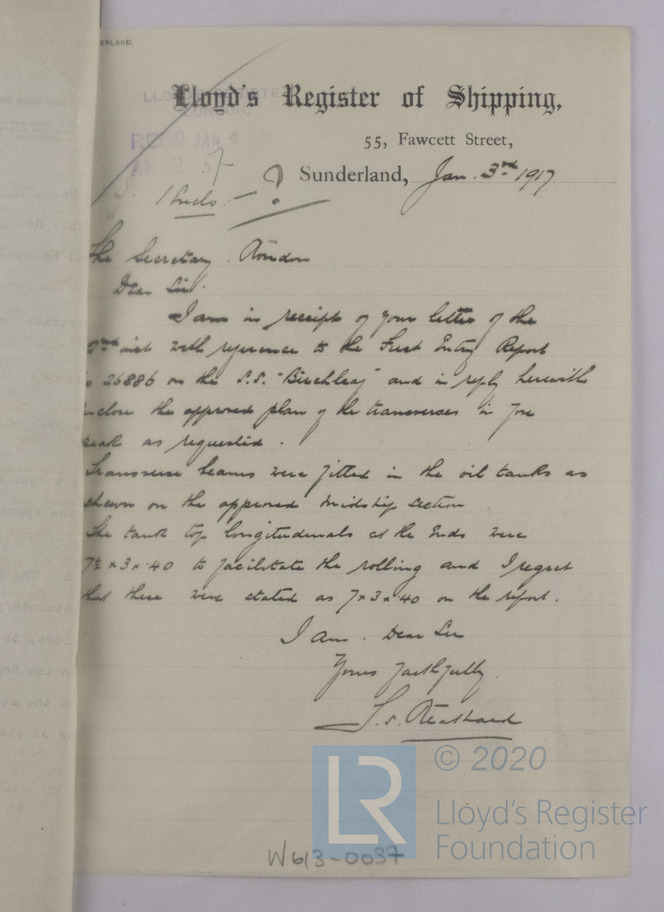 ERLAND.
Lloyd's Register of Shipping,
55, Fawcett Street,
Sunderland, Jan. 3rd 1917
LLOYD'S REGISTER
LONDON
RECD JAN 4 1917
ANSD
1 Enclo. - ?
The Secretary. London
Dear Sir.
I am in receipt of your letter of the
2nd inst with reference to the First Entry Report
26886 on the S.S. "Birchleaf" and in reply herewith
enclose the approved plan of the transverses in fore
peak as requested.
Transverse beams were fitted in the oil tanks as
shewn on the approved midship section
The tank top longitudinals at the Ends were
7½ × 3 × .40 to facilitate the rolling and I regret
that these were stated as 7 × 3 × .40 on the report.
I am. Dear Sir
Yours faithfully.
© 2020
LR
Lloyd's Register
Foundation
W613-0037